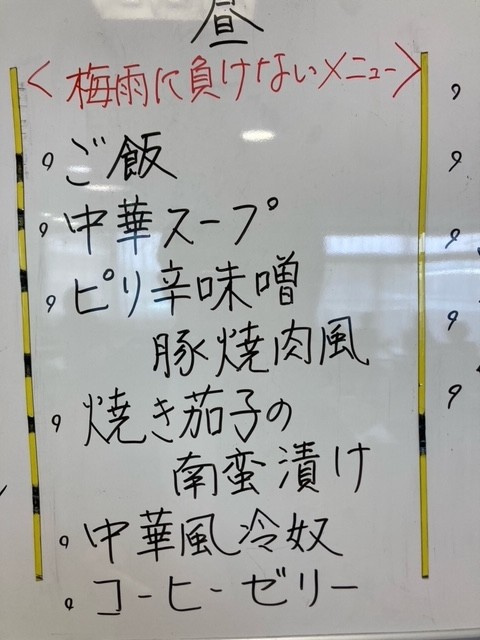 昼
<梅雨に負けないメニュー>
・ご飯
・中華スープ
・ピリ辛味噌
豚焼肉風
・焼き茄子の
南蛮漬け
・中華風冷奴
・コーヒーゼリー